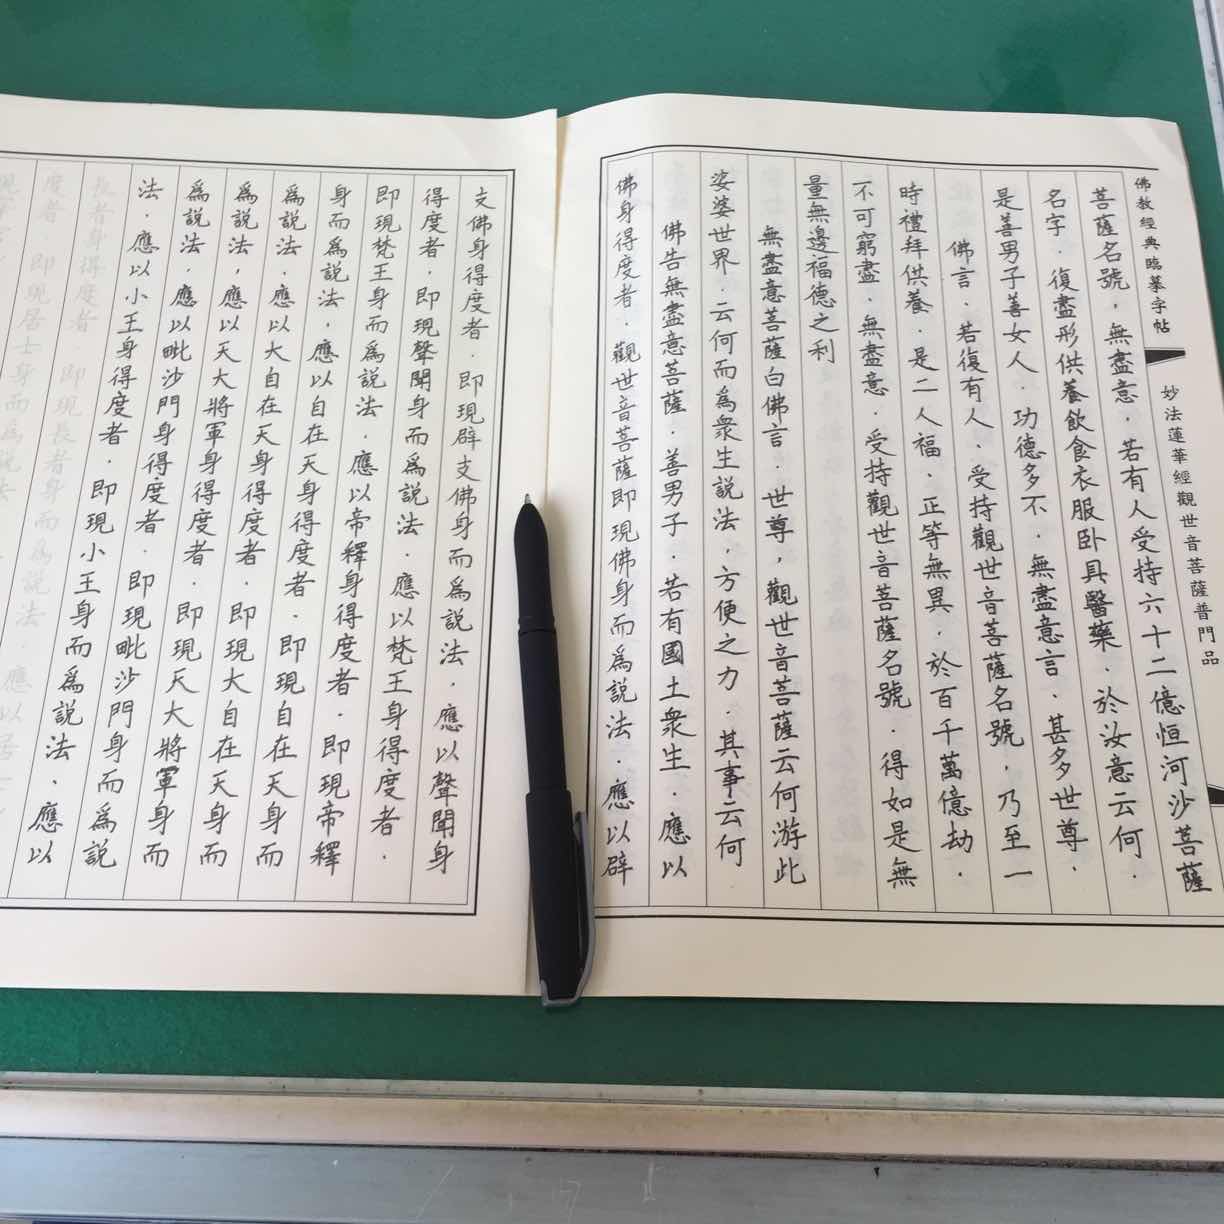 佛教經典臨摹字帖
妙法蓮華經觀世音菩薩普門品
菩薩名號．無盡意．若有人受持六十二億恒河沙菩薩
名字．復盡形供養飲食衣服卧具醫藥．於汝意云何．
是善男子善女人．功德多不．無盡意言．甚多世尊．
佛言．若復有人．受持觀世音菩薩名號．乃至一
時禮拜供養．是二人福．正等無異．於百千萬億劫．
不可窮盡．無盡意．受持觀世音菩薩名號．得如是無
量無邊福德之利
無盡意菩薩白佛言．世尊，觀世音菩薩云何游此
娑婆世界．云何而為衆生說法，方便之力．其事云何
佛告無盡意菩薩．善男子．若有國土衆生．應以
佛身得度者．觀世音菩薩即現佛身而為說法．應以辟
支佛身得度者．即現辟支佛身而為說法．應以聲聞身
得度者．即現聲聞身而為說法．應以梵王身得度者．
即現梵王身而為說法．應以帝釋身得度者．即現帝釋
身而為說法，應以自在天身得度者．即現自在天身而
為說法．應以大自在天身得度者．即現大自在天身而
為說法，應以天大將軍身得度者．即現天大將軍身而
為說法．應以毗沙門身得度者．即現毗沙門身而為說
法．應以小王身得度者．即現小王身而為說法．應以
長者身得度者．即現長者身而為說法．應以居士
度者．即現居士身而為說法